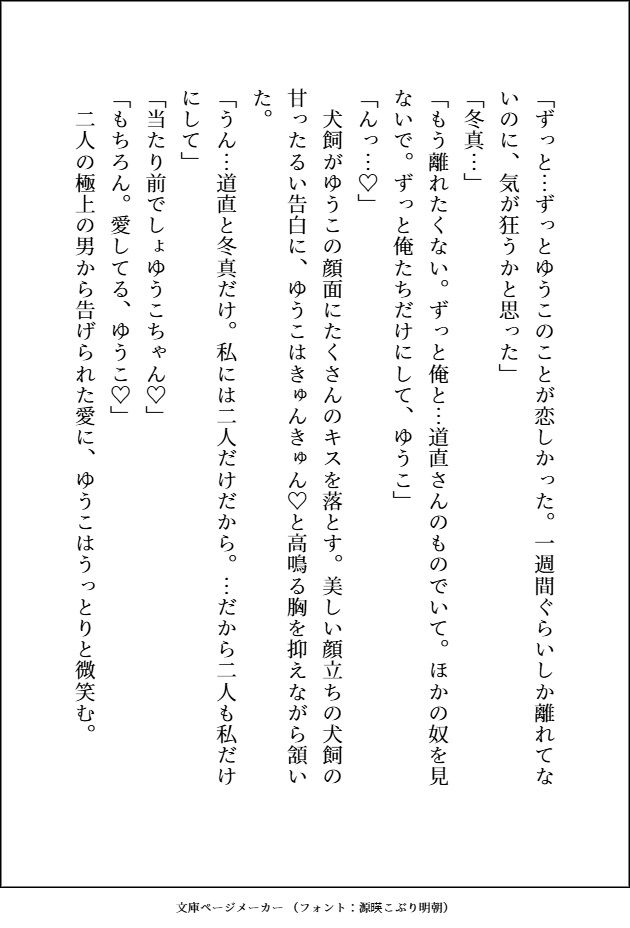 「ずっと…ずっとゆうこのことが恋しかった。一週間ぐらいしか離れてな
いのに、気が狂うかと思った」
「冬真…」
「もう離れたくない。ずっと俺と…道直さんのものでいて。ほかの奴を見
ないで。ずっと俺たちだけにして、ゆうこ」
「んっ…♡」
　犬飼がゆうこの顔面にたくさんのキスを落とす。美しい顔立ちの犬飼の
甘ったるい告白に、ゆうこはきゅんきゅん♡と高鳴る胸を抑えながら頷い
た。
「うん…道直と冬真だけ。私には二人だけだから。…だから二人も私だけ
にして」
「当たり前でしょゆうこちゃん♡」
「もちろん。愛してる、ゆうこ♡」
　二人の極上の男から告げられた愛に、ゆうこはうっとりと微笑む。
文庫ページメーカー （フォント：源暎こぶり明朝）